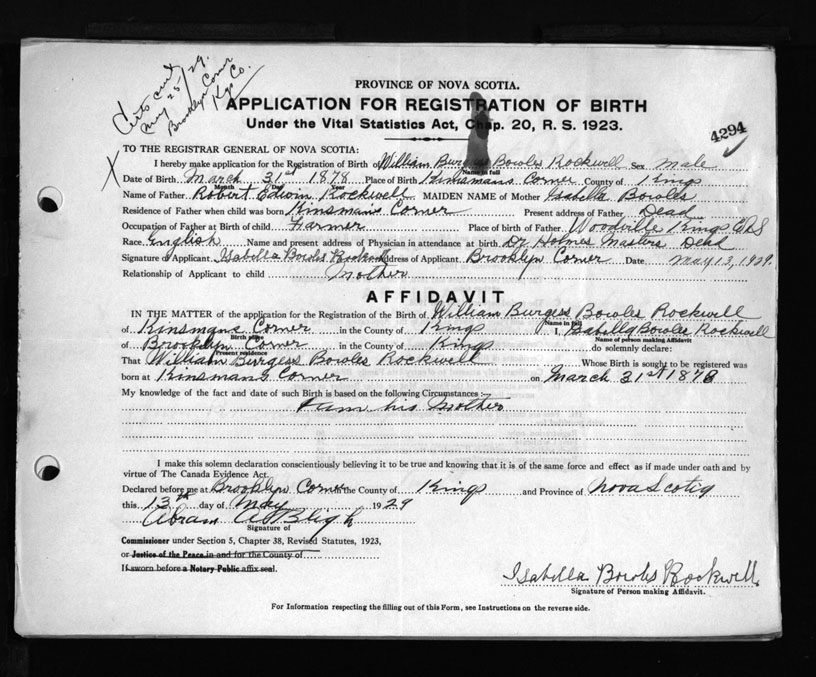 Certs cent
May 25/29.
Brooklyn Corner
Kgs Co.
PROVINCE OF NOVA SCOTIA.
APPLICATION FOR REGISTRATION OF BIRTH
Under the Vital Statistics Act, Chap. 20, R. S. 1923.
4294
TO THE REGISTRAR GENERAL OF NOVA SCOTIA:
I hereby make application for the Registration of Birth of William Burgess Bowles Rockwell Sex male
Name in full
Date of Birth March 31st 1878 Place of Birth Kinsmans Corner County of Kings
Month Day Year
Name of Father Robert Edwin Rockwell MAIDEN NAME of Mother Isabella Bowles
Residence of Father when child was born Kinsmans Corner Present address of Father Dead
Occupation of Father at Birth of child Farmer Place of birth of Father Woodville Kings Co NS
Race English Name and present address of Physician in attendance at birth Dr Holmes Masters Dead
Signature of Applicant Isabella Bowles Rockwell Address of Applicant Brooklyn Corner Date May 13, 1929.
Relationship of Applicant to child Mother
AFFIDAVIT
IN THE MATTER of the application for the Registration of the Birth of William Burgess Bowles Rockwell
Name in full
of Kinsmans Corner in the County of Kings I, Isabella Bowles Rockwell
Birth place Name of person making Affidavit
of Brooklyn Corner in the County of Kings do solemnly declare:
Present residence
That William Burgess Bowles Rockwell Whose Birth is sought to be registered was
born at Kinsmans Corner on March 31st 1878
My knowledge of the fact and date of such Birth is based on the following Circumstances:—
I am his Mother
I make this solemn declaration conscientiously believing it to be true and knowing that it is of the same force and effect as if made under oath and by
virtue of The Canada Evidence Act.
Declared before me at Brooklyn Corner in the County of Kings and Province of Nova Scotia
this 13th day of May 1929
Abram A Bligh
Signature of
Commissioner under Section 5, Chapter 38, Revised Statutes, 1923,
or Justice of the Peace in and for the County of
If sworn before a Notary Public affix seal.
Isabella Bowles Rockwell.
Signature of Person making Affidavit.
For Information respecting the filling out of this Form, see Instructions on the reverse side.